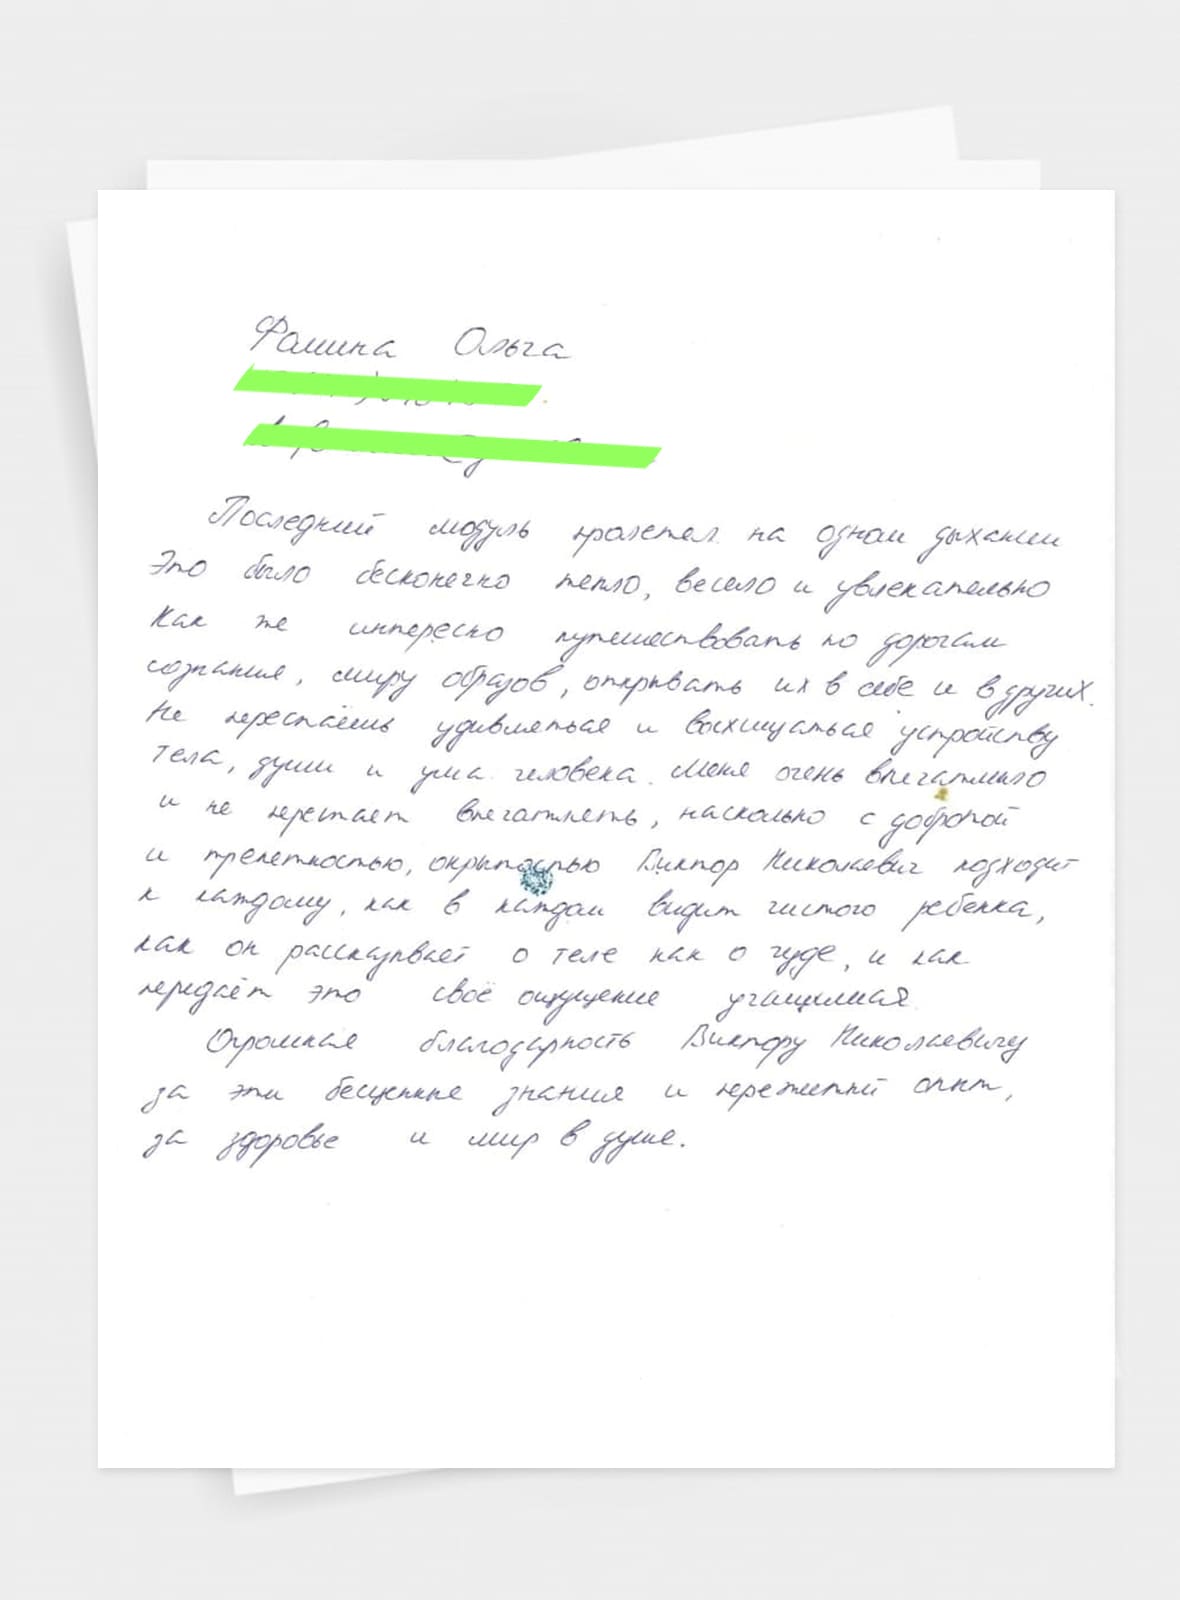 Фомина Ольга
Последний модуль пролетел на одном дыхании
Это было бесконечно тепло, весело и увлекательно
Как же интересно путешествовать по дорогам
сознания, миру образов, открывать их в себе и в других.
Не перестаёшь удивляться и восхищаться устройству
тела, души и ума человека. Меня очень впечатлило
и не перестает впечатлять, насколько с добротой
и трепетностью, окрытостью Виктор Николаевич подходит
к каждому, как в каждом видит чистого ребенка,
как он рассказывает о теле как о чуде, и как
передаёт это своё ощущение учащимся.
Огромная благодарность Виктору Николаевичу
за эти бесценные знания и пережитый опыт,
за здоровье и мир в душе.